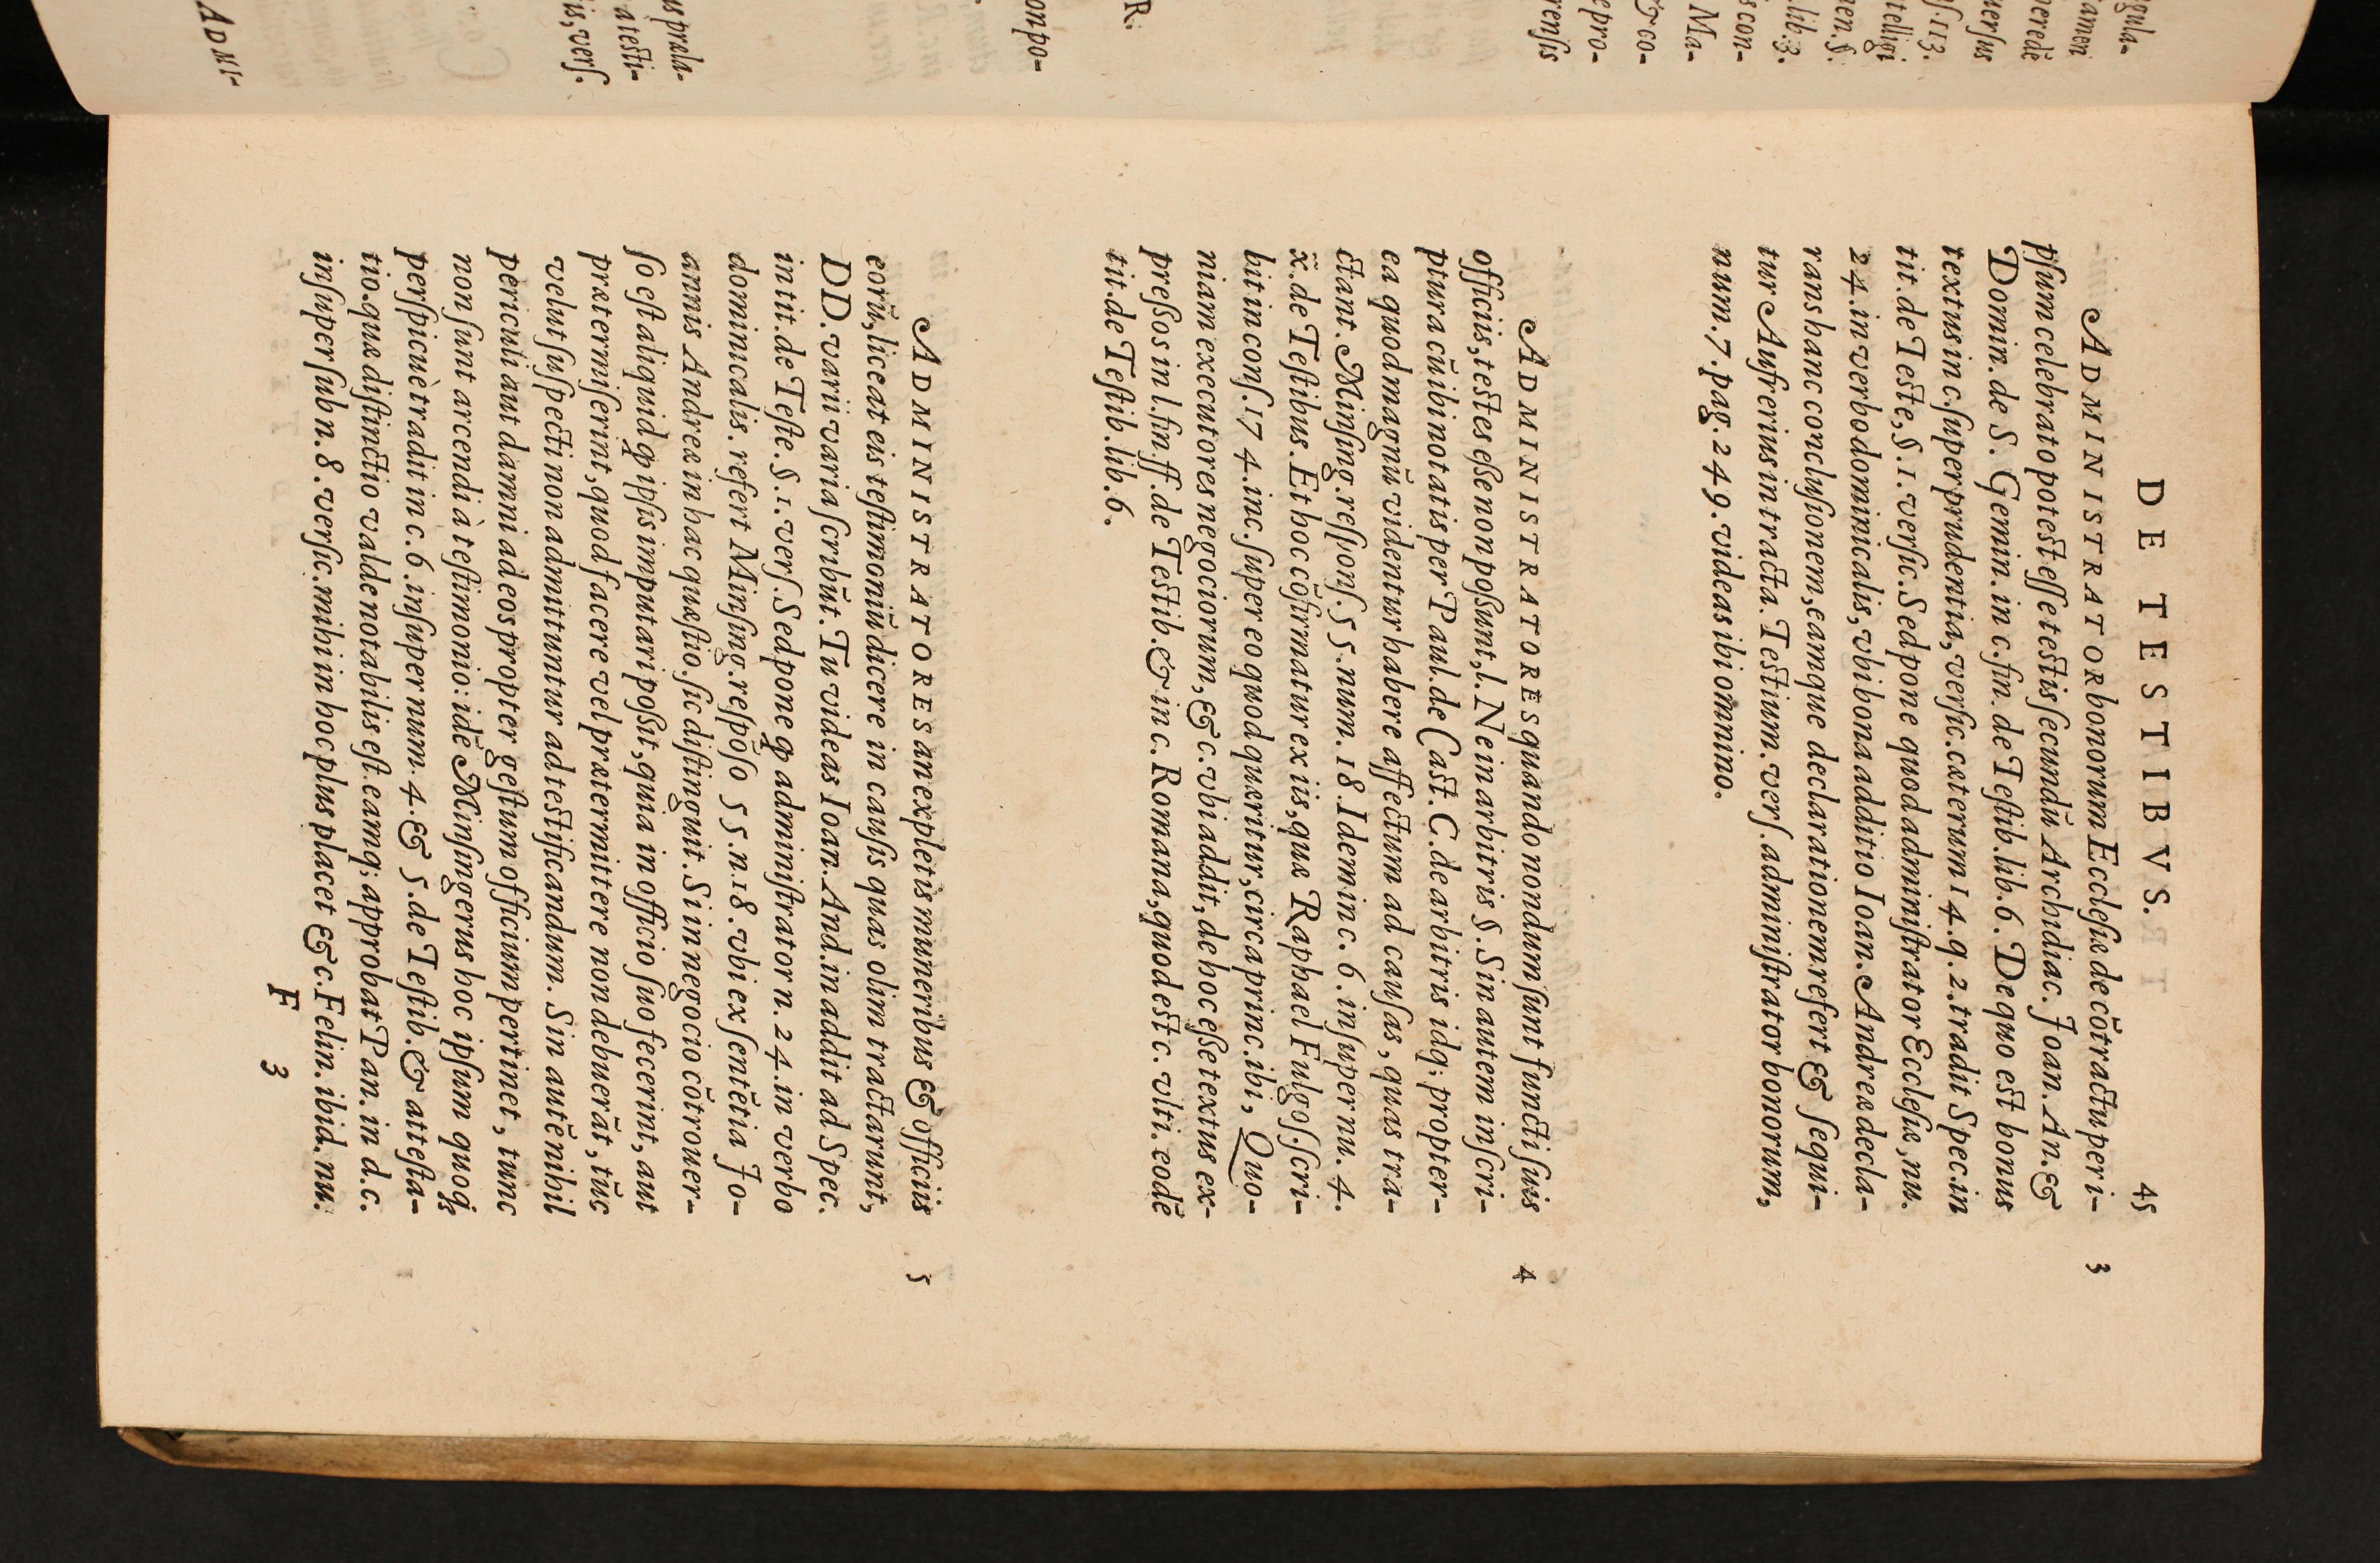 DE TESTIBVS. 45
ADMINISTRATOR bonorum Ecclesiæ de cõtractu peri- 3
psum celebrato potest esse testis secundũ Archidiac. Joan. An. &
Domin. de S. Gemin. in c. fin. de Testib. lib. 6. De quo est bonus
textus in c. super prudentia, versic. cæterum 14. q. 2. tradit Spec. in
tit. de Teste, §. 1. versic. Sed pone quod administrator Ecclesiæ, nu.
24. in verbo dominicalis, vbi bona additio Ioan. Andreæ decla-
rans hanc conclusionem, eamque declarationem refert & sequi-
tur Aufrerius in tracta. Testium. vers. administrator bonorum,
num. 7. pag. 249. videas ibi omnino.
ADMINISTRATORES quando nondum sunt functi suis 4
officiis, testes esse non possunt, l. Ne in arbitris §. Sin autem inscri-
ptura cũ ibi notatis per Paul. de Cast. C. de arbitris idq; propter-
ea quod magnũ videntur habere affectum ad causas, quas tra-
ctant. Minsing. respons. 55. num. 18. Idem in c. 6. insuper nu. 4.
x̃. de Testibus. Et hoc cõfirmatur ex iis, quæ Raphael Fulgos. scri-
bit in cons. 174. in c. super eo quod quæritur, circa princ. ibi, Quo-
niam executores negociorum, &c. vbi addit, de hoc esse textus ex-
pressos in l. fin. ff. de Testib. & in c. Romana, quod est c. vlti. eodẽ
tit. de Testib. lib. 6.
ADMINISTRATORES an expletis muneribus & officiis 5
eorũ, liceat eis testimoniũ dicere in causis quas olim tractarunt,
DD. varii varia scribũt. Tu videas Ioan. And. in addit ad Spec.
in tit. de Teste. §. 1. vers. Sed pone ꝙ administrator n. 24. in verbo
dominicalis. refert Minsing. respõso 55. n. 18. vbi ex sentẽtia Jo-
annis Andreæ in hac quæstio. sic distinguit. Si in negocio cõtrouer-
so est aliquid ꝙ ipsis imputari possit, quia in officio suo fecerint, aut
prætermiserint, quod facere vel prætermittere non debuerãt, tũc
velut suspecti non admittuntur ad testificandum. Sin autẽ nihil
periculi aut damni ad eos propter gestum officium pertinet, tunc
non sunt arcendi à testimonio: idẽ Minsingerus hoc ipsum quoq;
perspicuè tradit in c. 6. insuper num. 4. & 5. de Testib. & attesta-
tio. quæ distinctio valde notabilis est. eamq; approbat Pan. in d. c.
insuper sub n. 8. versic. mihi in hoc plus placet &c. Felin. ibid. nu.
F 3